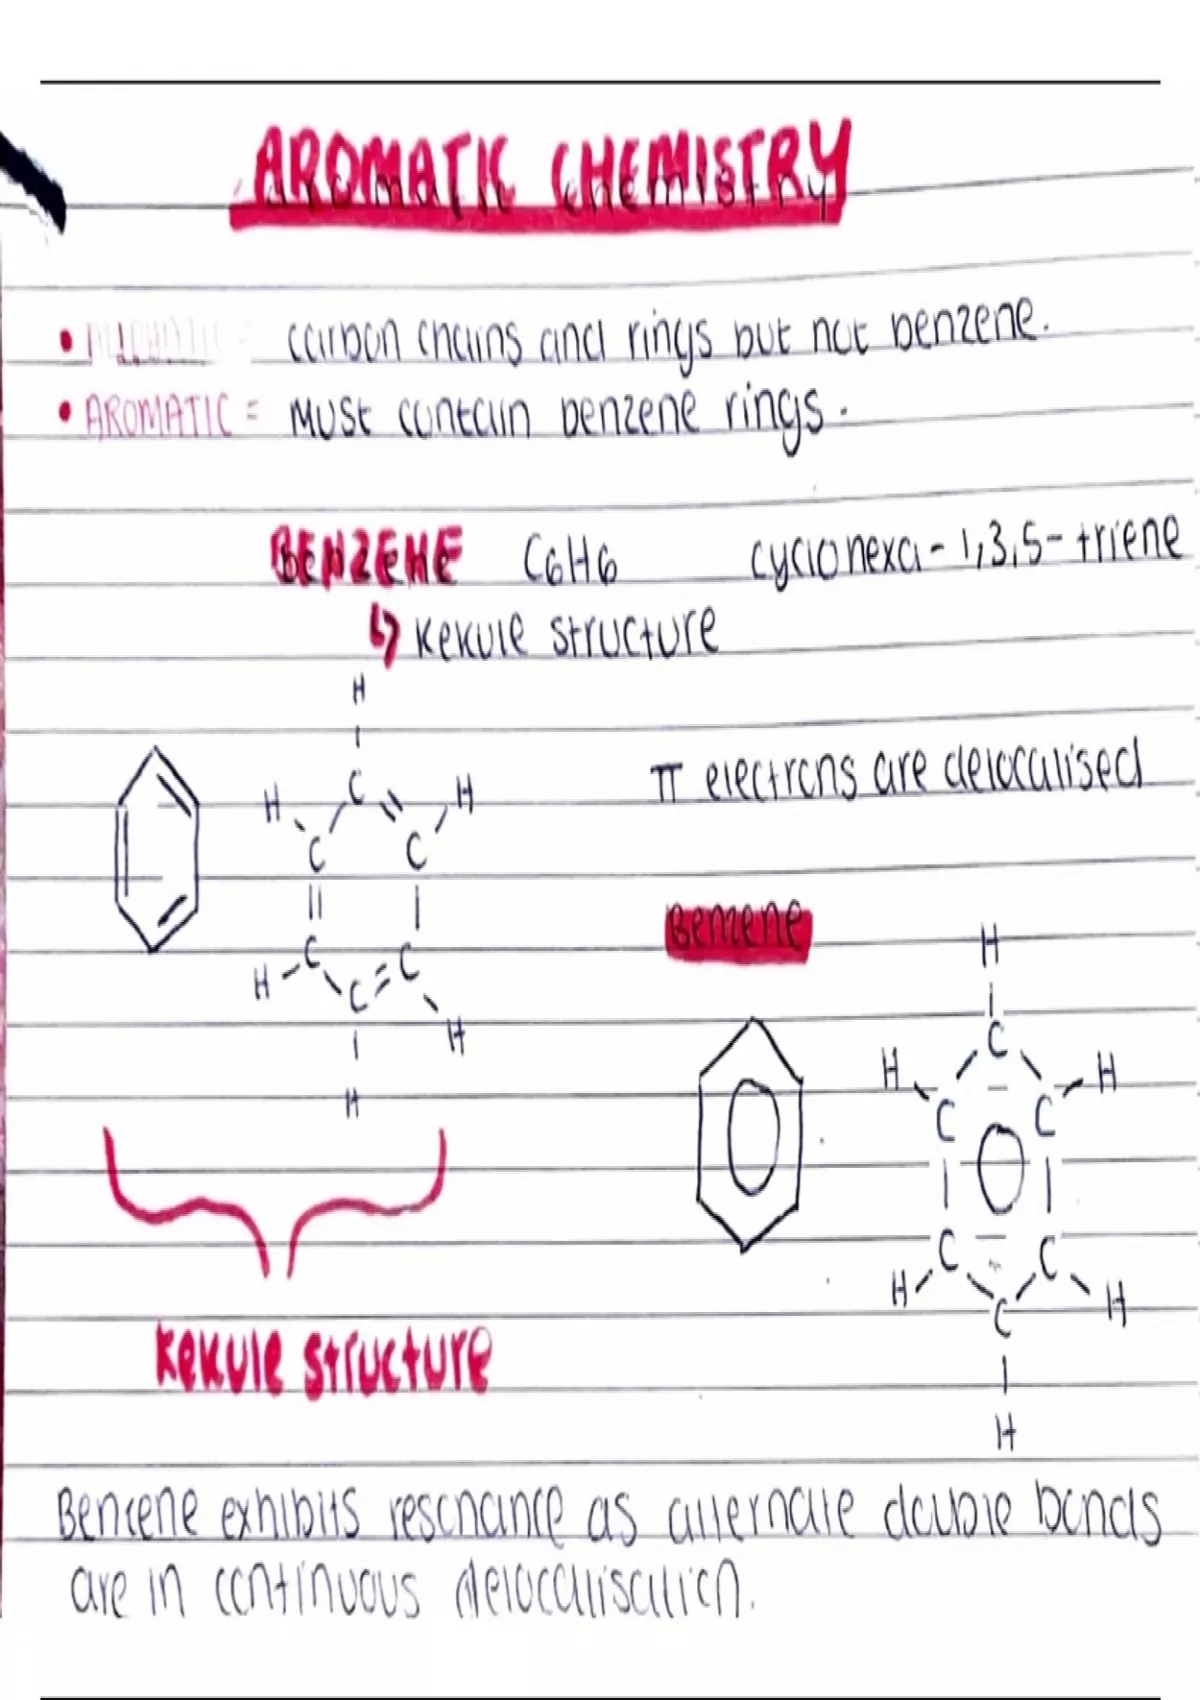 AROMATIC CHEMISTRY
aromatic chemistry
• carbon chains and rings but not benzene.
• AROMATIC = Must contain benzene rings.
BENZENE C6H6 cyclohexa-1,3,5-triene
↳ Kekule structure
H
π electrons are delocalised
H C H
C C
Benzene
H
H C C
C H
H
C
H H
C C
H
Kekule structure
C C
H C H
H
Benzene exhibits resonance as alternate double bonds
are in continuous delocalisation.